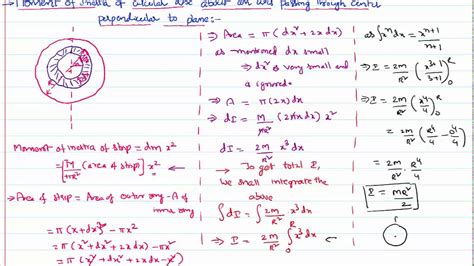 → Moment of inertia of circular disc about an axis passing through center
perpendicular to plane:-
Moment of inertia of strip = dm x²
= [M/πR² (area of strip)] x²
→ Area of strip = Area of outer ring - A of
inner ring
= π(x+dx)² - πx²
= π(x²+dx²+2xdx) - πx²
= π(x²+dx²+2xdx-x²)
⇒ Area = π(dx²+2xdx)
as mentioned dx small
⇒ dx² is very small and
is ignored.
⇒ A = π(2xdx)
⇒ dI = M/πR² (2πxdx) x²
⇒ dI = 2M/R² x³dx
→ To get total I,
we small integrate the
above
∫dI = ∫ 2M/R² x³dx
⇒ I = 2M/R² ∫₀ᴿ x³dx
as ∫xⁿdx = xⁿ⁺¹/n+1
⇒ I = 2M/R² (x³⁺¹/3+1)₀ᴿ
⇒ I = 2M/R² (x⁴/4)₀ᴿ
⇒ I = 2M/R² (R⁴/4 - 0⁴/4)
⇒ I = 2M/R² R⁴/4
I = MR²/2